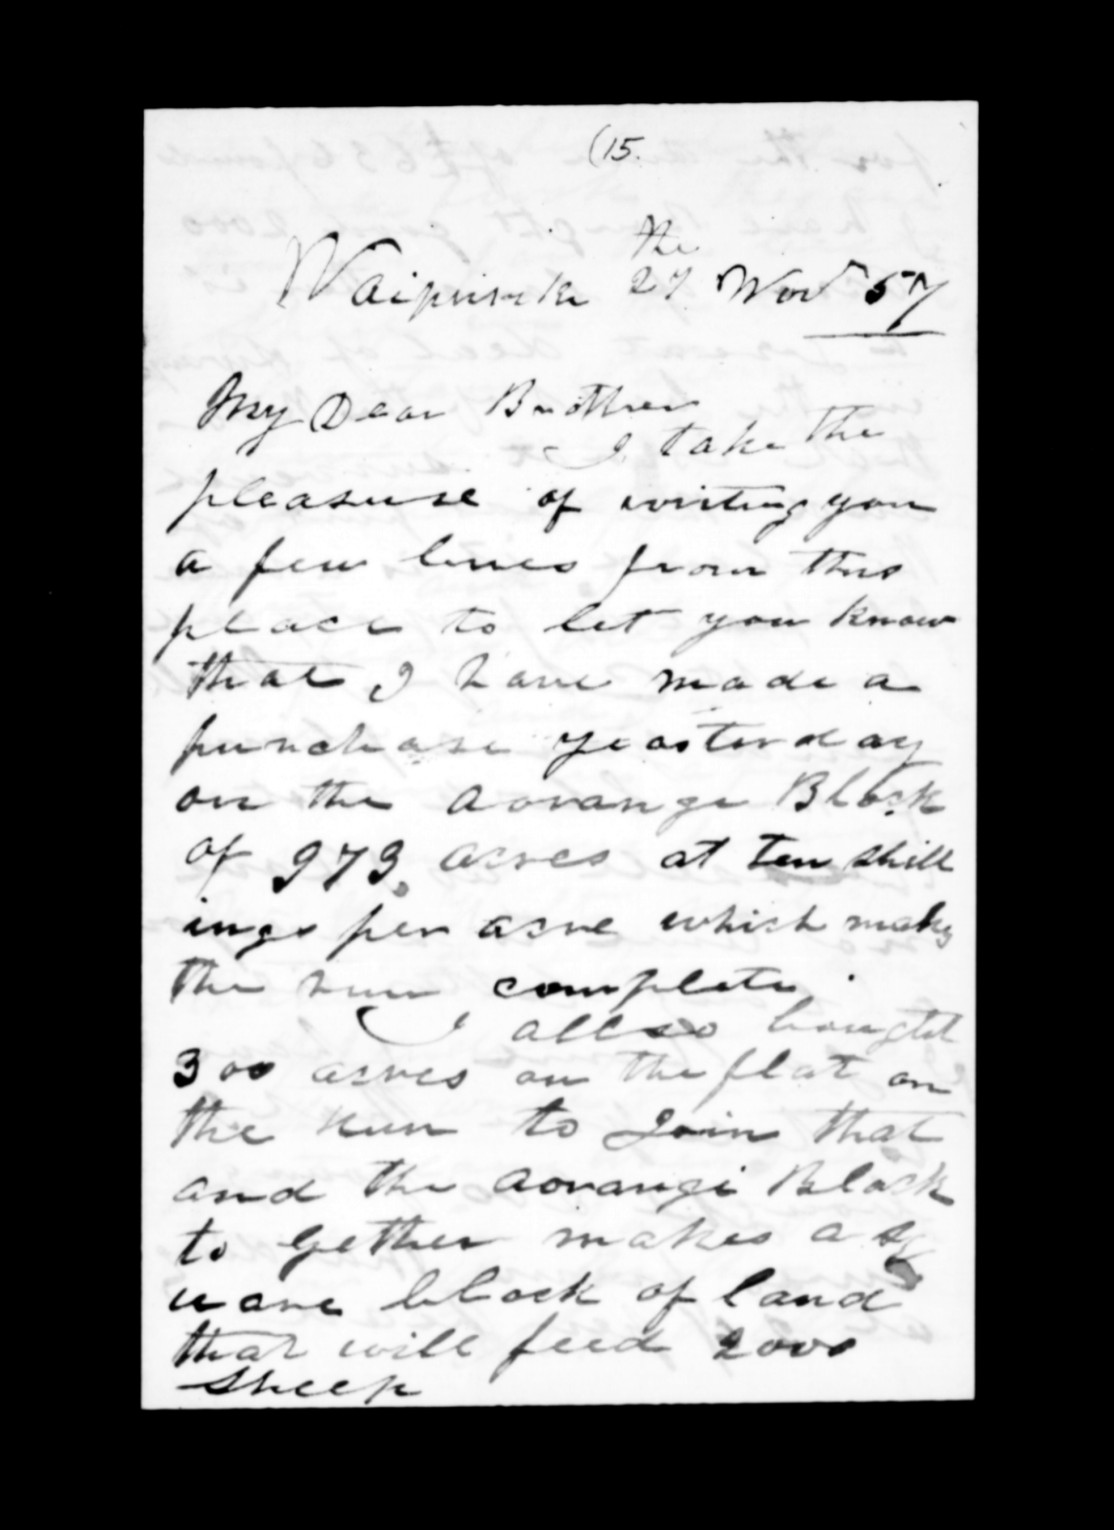 (15.
Waipureku the 27 Nov 57
My Dear Brother
I take the
pleasure of writing you
a few lines from this
place to let you know
that I have made a
purchase yeasterday
on the Aorange Block
of 973 acres at ten shill
ings per acre which makes
the run complete.
I allso bought
300 acres on the flat on
the Run to Join that
and the Aorangi Block
to Gether makes a sq
uare block of land
that will feed 2000
Sheep